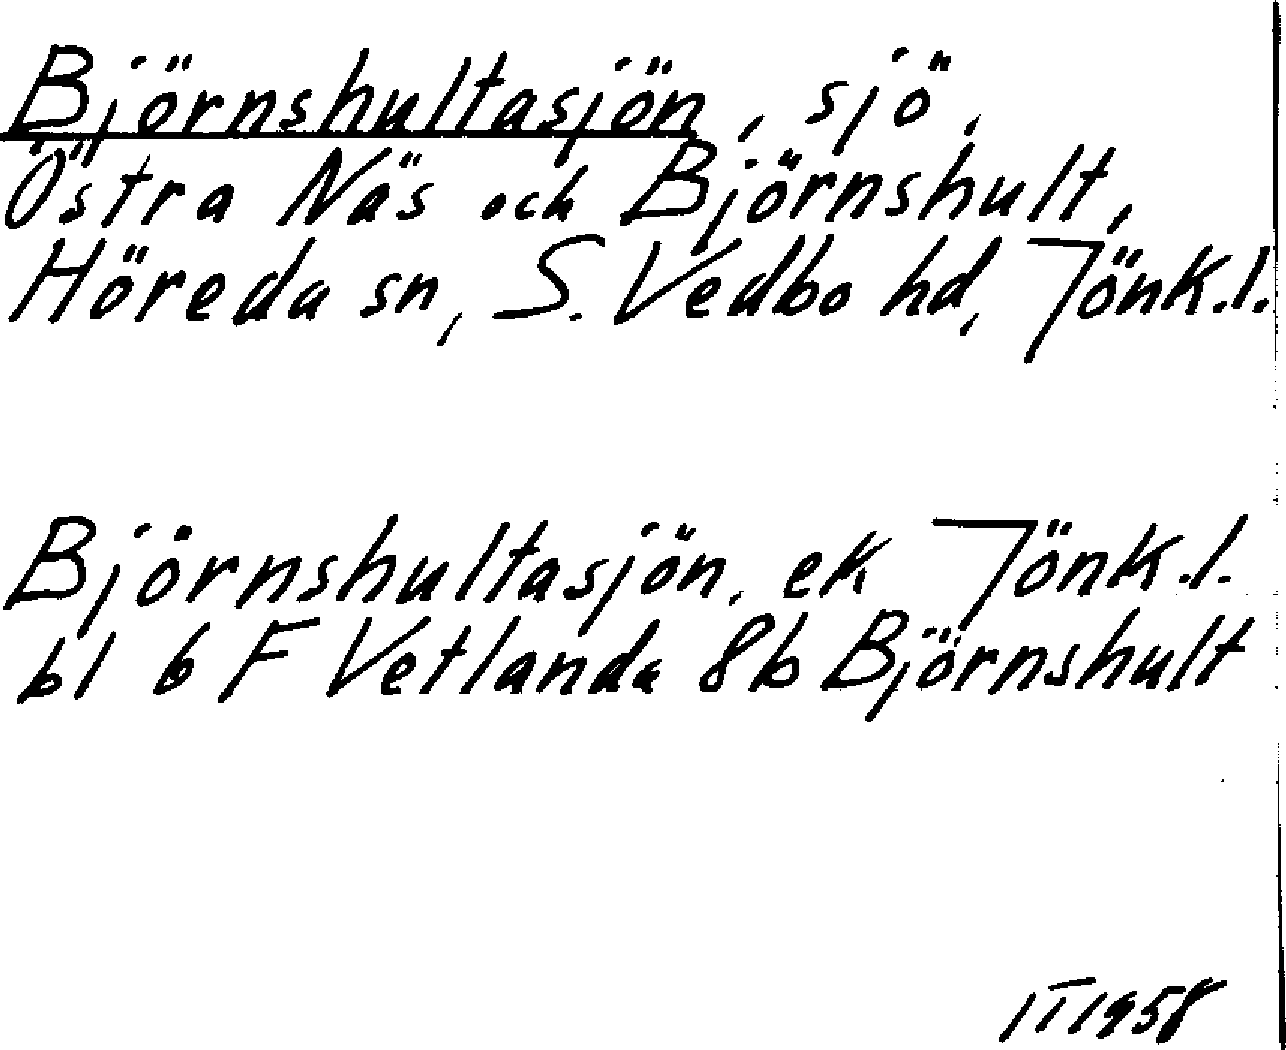 Björnshultasjön, sjö,
Östra Näs och Björnshult,
Höreda sn, S. Vedbo hd, Jönk.l.
Björnshultasjön, ek Jönk.l.
bl 6 F Vetlanda 8b Björnshult
IT 1958